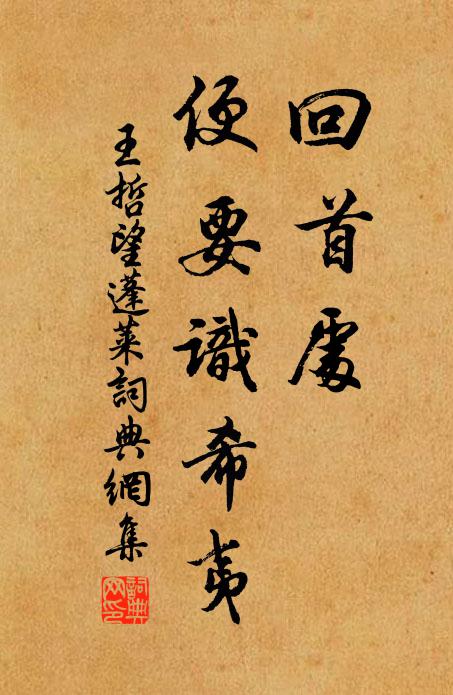 回首處
便要識希夷
王哲望蓬萊詞典網集
詞典網印